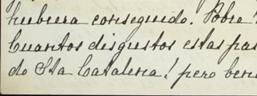 hubiera conseguido. Pobre
Cuantos disgustos estas pa
do Sta Catalina! pero ben